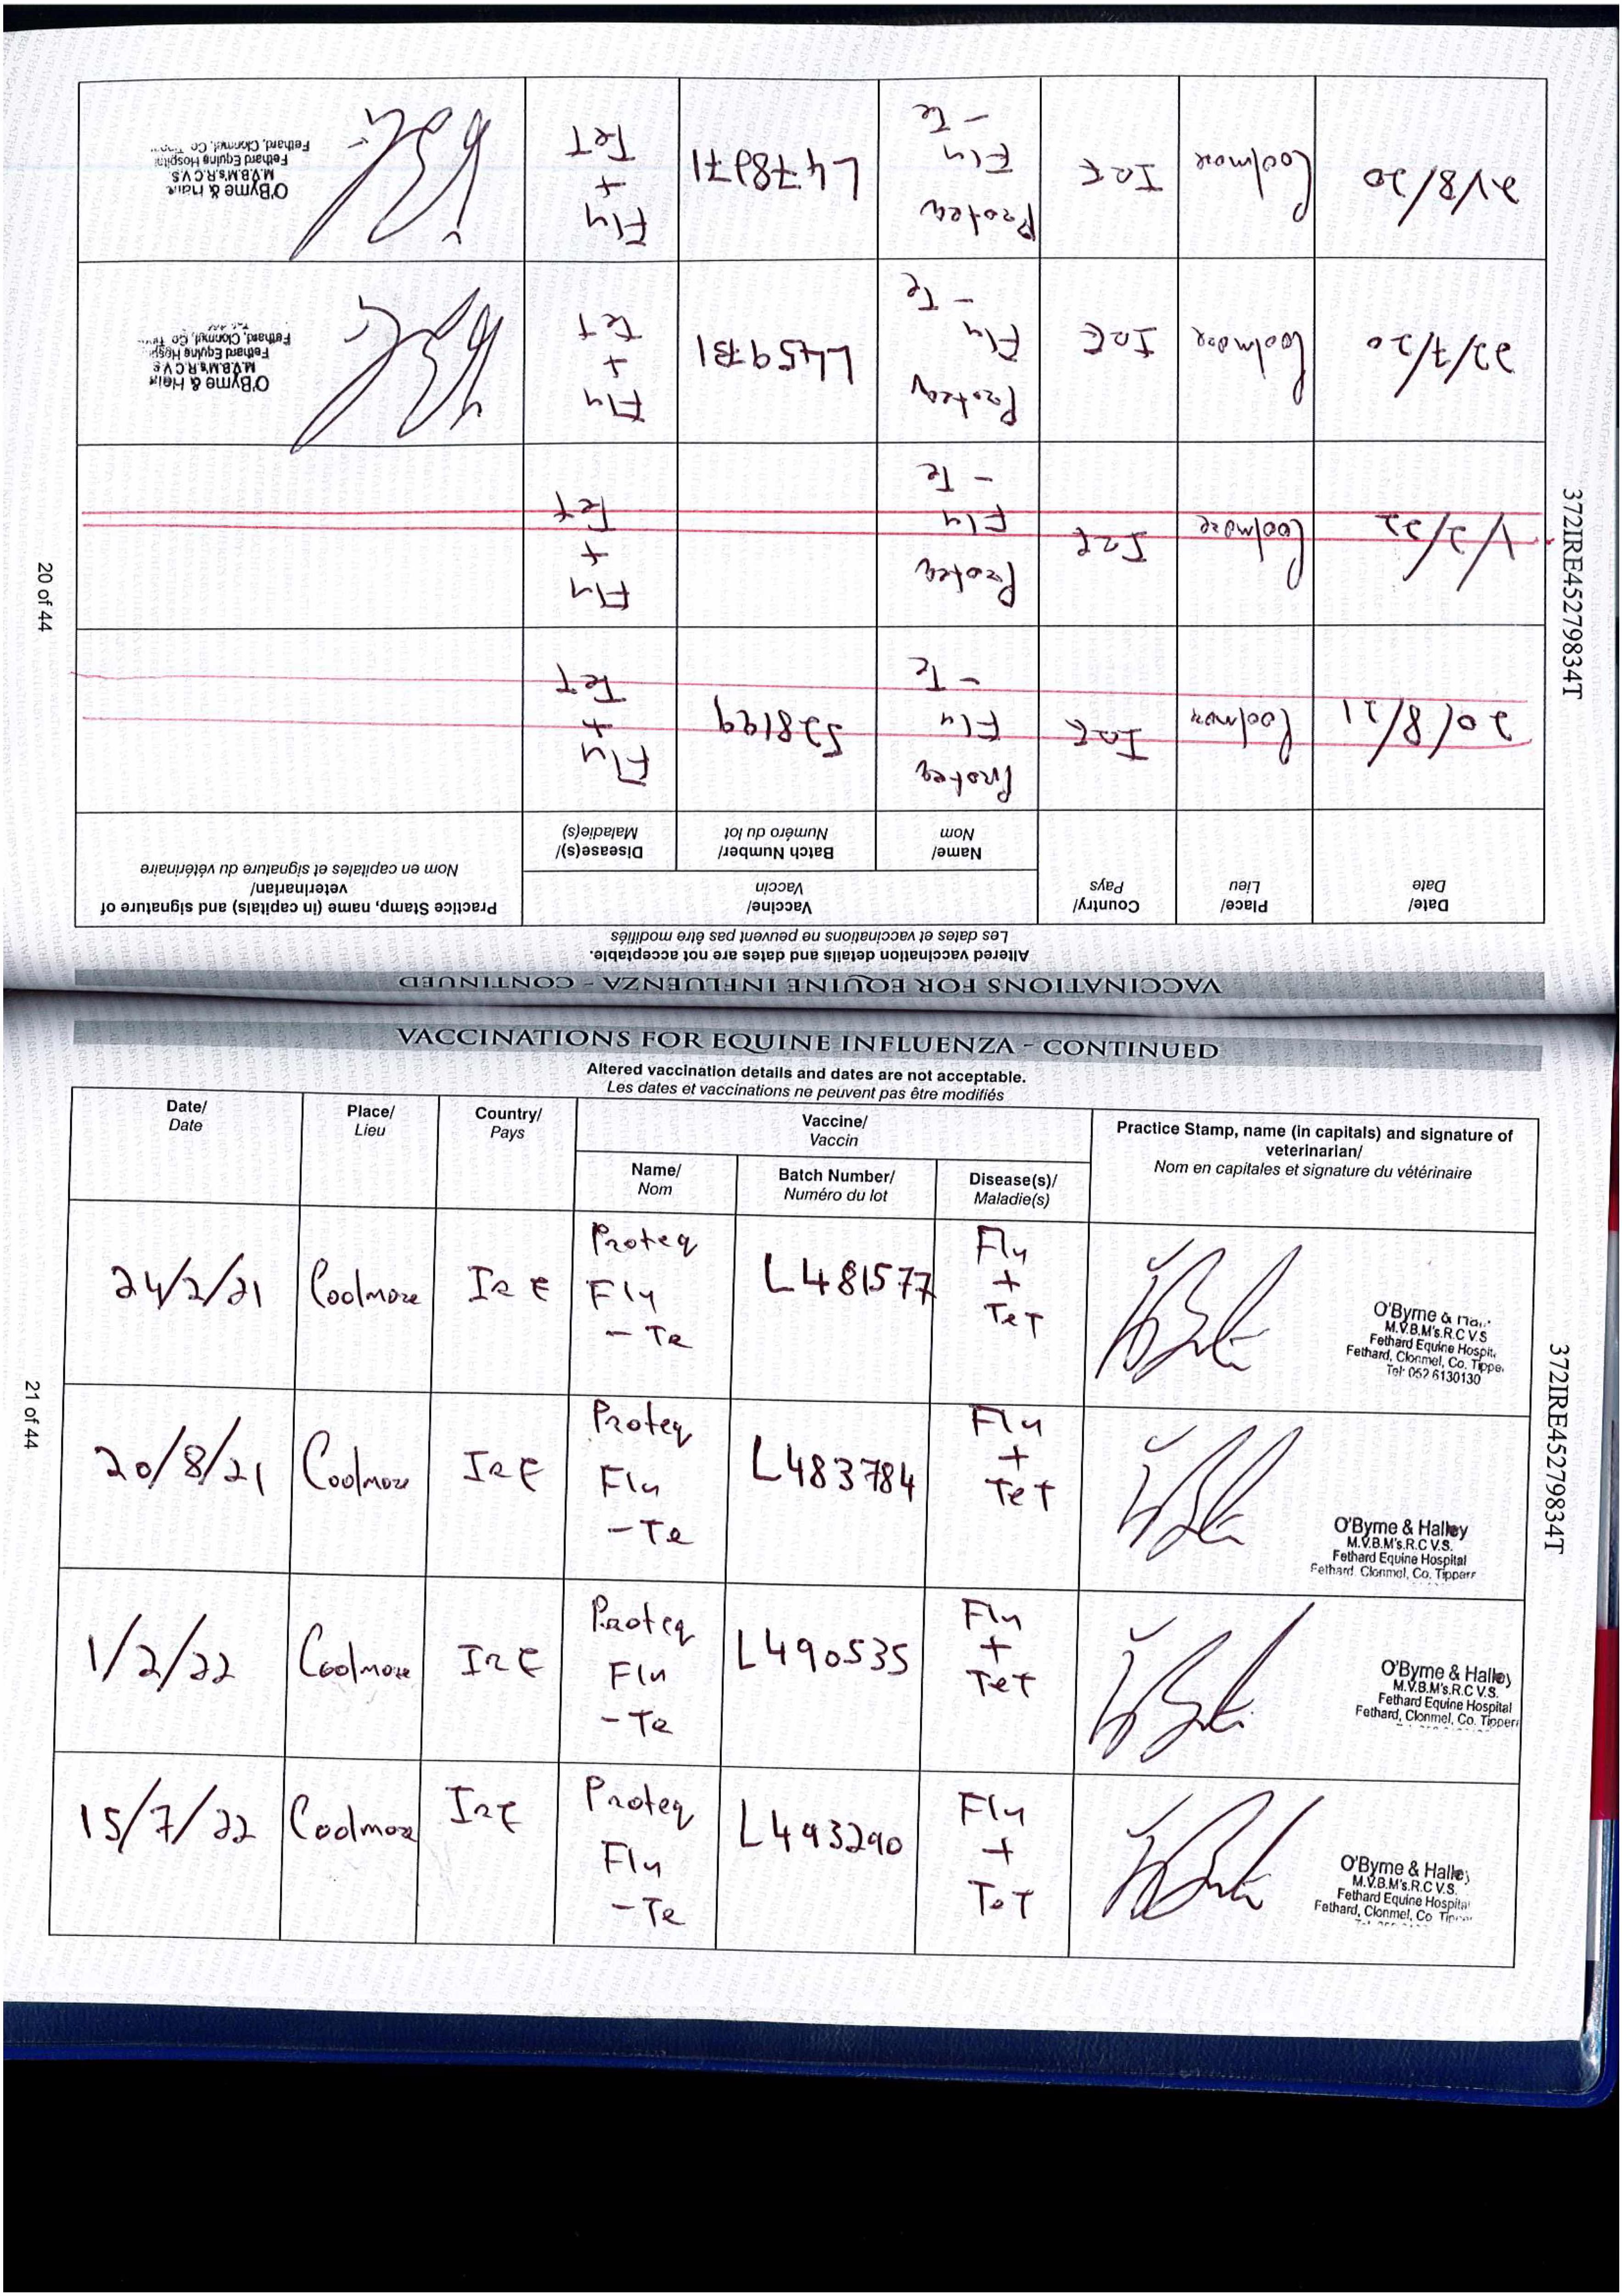 VACCINATIONS FOR EQUINE INFLUENZA - CONTINUED
Altered vaccination details and dates are not acceptable.
Les dates et vaccinations ne peuvent pas être modifiés
Date/
Date
Place/
Lieu
Country/
Pays
Vaccine/
Vaccin
Name/
Nom
Batch Number/
Numéro du lot
Disease(s)/
Maladie(s)
Practice Stamp, name (in capitals) and signature of
veterinarian/
Nom en capitales et signature du vétérinaire
20/8/21
Coolmore
IRE
Proteq
Flu
- Te
528199
Flu
+
Tet
1/2/22
Coolmore
IRE
Proteq
Flu
- Te
Flu
+
Tet
22/7/20
Coolmore
IRE
Proteq
Flu
- Te
L459731
Flu
+
Tet
O'Byrne &
M.V.B.M's.R.C.V.S
Fethard Equine
Fethard, Clonmel, Co.
21/8/20
Coolmore
IRE
Proteq
Flu
- Te
L478971
Flu
+
Tet
O'Byrne &
M.V.B.M's.R.C.V.S.
Fethard Equine Hospital
Fethard, Clonmel, Co.
20 of 44
372IRE45279834T
VACCINATIONS FOR EQUINE INFLUENZA - CONTINUED
Altered vaccination details and dates are not acceptable.
Les dates et vaccinations ne peuvent pas être modifiés
Date/
Date
Place/
Lieu
Country/
Pays
Vaccine/
Vaccin
Name/
Nom
Batch Number/
Numéro du lot
Disease(s)/
Maladie(s)
Practice Stamp, name (in capitals) and signature of
veterinarian/
Nom en capitales et signature du vétérinaire
24/2/21
Coolmore
IRE
Proteq
Flu
- Te
L481577
Flu
+
TeT
O'Byrne &
M.V.B.M's.R.C V.S
Fethard Equine Hospit
Fethard, Clonmel, Co. Tippe
Tel: 052 6130130
20/8/21
Coolmore
IRE
Proteq
Flu
- Te
L483784
Flu
+
TeT
O'Byrne & Halley
M.V.B.M's.R.C V.S.
Fethard Equine Hospital
Fethard, Clonmel, Co. Tipperr
1/2/22
Coolmore
IRE
Proteq
Flu
- Te
L490535
Flu
+
TeT
O'Byrne & Halley
M.V.B.M's.R.C V.S.
Fethard Equine Hospital
Fethard, Clonmel, Co. Tipper
15/7/22
Coolmore
IRE
Proteq
Flu
- Te
L493290
Flu
+
TeT
O'Byrne & Halley
M.V.B.M's.R.C V.S.
Fethard Equine Hospital
Fethard, Clonmel, Co
21 of 44
372IRE45279834T